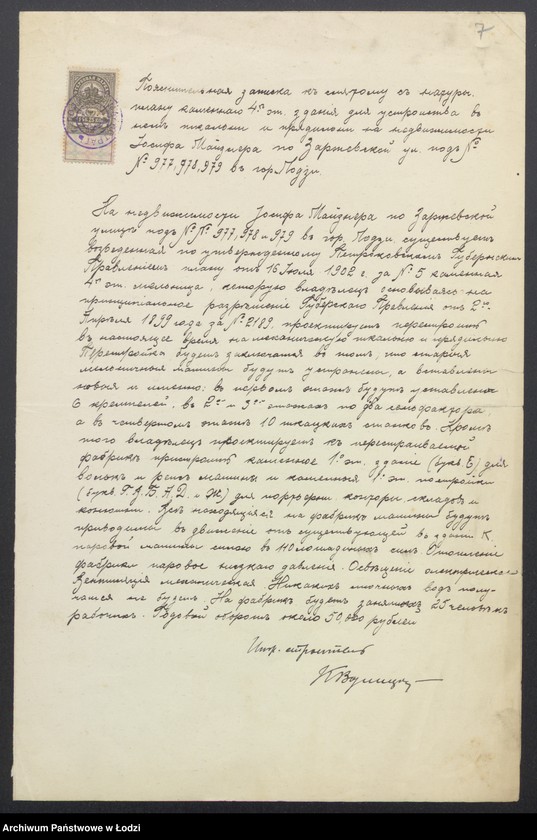 7
Пояснительная записка къ снятому съ натуры
плану каменнаго 4х эт. зданія для устройства въ
немъ ткальни и прядильни на недвижимости
Іосифа Майзнера по Заржевской ул. подъ №
№ 977, 978, 979 въ гор. Лодзи.
На недвижимости Іосифа Майзнера по Заржевской
улицѣ подъ №№ 977, 978 и 979 въ гор. Лодзи, существуетъ
возведенная по утвержденному Петроковскимъ Губернскимъ
Правленіемъ плану отъ 16 Іюля 1902 г. за № 5 каменная
4х эт. мельница, которую владѣлецъ основываясь на
принципіальное разрѣшеніе Губернскаго Правленія отъ 2го
Апрѣля 1899 года за № 2189, проектируетъ перестроить
въ настоящее время на механическую ткальню и прядильню
Перестройка будетъ заключаться въ томъ, что старыя
мельничныя машины будутъ устранены, а вставлены
новыя и именно: въ первомъ этажѣ будутъ уставлены
6 кремпелей, въ 2мъ и 3мъ этажахъ по два сельфактора,
а въ четвертомъ этажѣ 10 ткацкихъ станковъ. Кромѣ
того владѣлецъ проектируетъ къ перестраиваемой
фабрикѣ пристроить каменное 1о эт. зданіе (букв. Е) для
волькъ и рейсъ машины и каменныя 1о эт. постройки
(букв. Г. З. Б. А, Д. и Ж) для портьерни, конторы складовъ и
конюшни. Всѣ находящіяся на фабрикѣ машины будутъ
приводимы въ движеніе отъ существующей въ зданіи К.
паровой машины силою въ 110 лошадиныхъ силъ. Отопленіе
фабрики паровое низкаго давленія. Освѣщеніе электрическое
Вентиляція механическая. Никакихъ сточныхъ водъ полу-
чаться не будетъ. На фабрикѣ будетъ занятыхъ 25 человѣкъ
рабочихъ. Годовой оборотъ около 50,000 рублей
Инж. строитель
Archiwum Państwowe w Łodzi